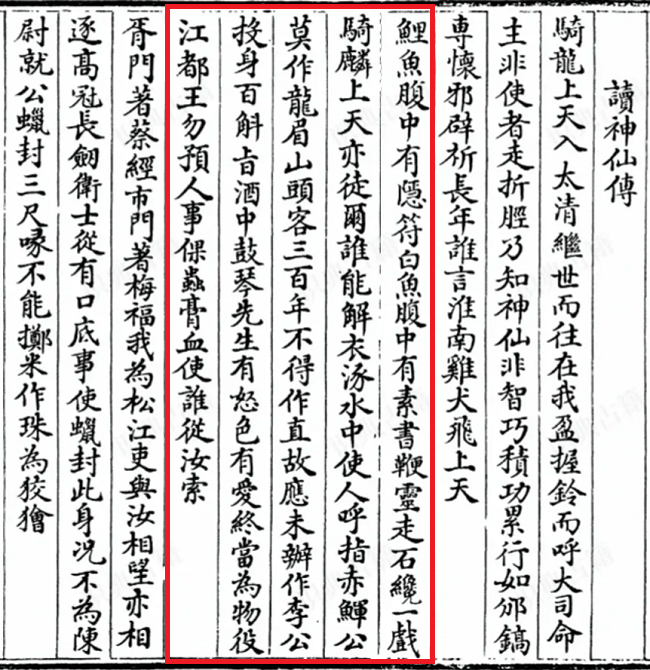 讀神仙傳
騎龍上天入太清繼世而往在我盈握鈴而呼大司命
主非使者走折脛乃知神仙非智巧積功累行如邠鎬
専懷邪辟祈長年誰言淮南雞犬飛上天
鯉魚腹中有隱符白魚腹中有素書鞭靈走石纔一戲
騎麟上天亦徒爾誰能解衣涿水中使人呼指赤鯶公
莫作龍眉山頭客三百年不得作直故應未辦作李公
投身百斛旨酒中鼓琴先生有怒色有愛終當為物役
江都王勿預人事倮蟲膏血使誰從汝索
胥門著蔡經市門著梅福我為松江吏與汝相望亦相
逐高冠長劒衛士從有口底事使蠟封此身況不為陳
尉就公蠟封三尺喙不能擲米作珠為狡獪